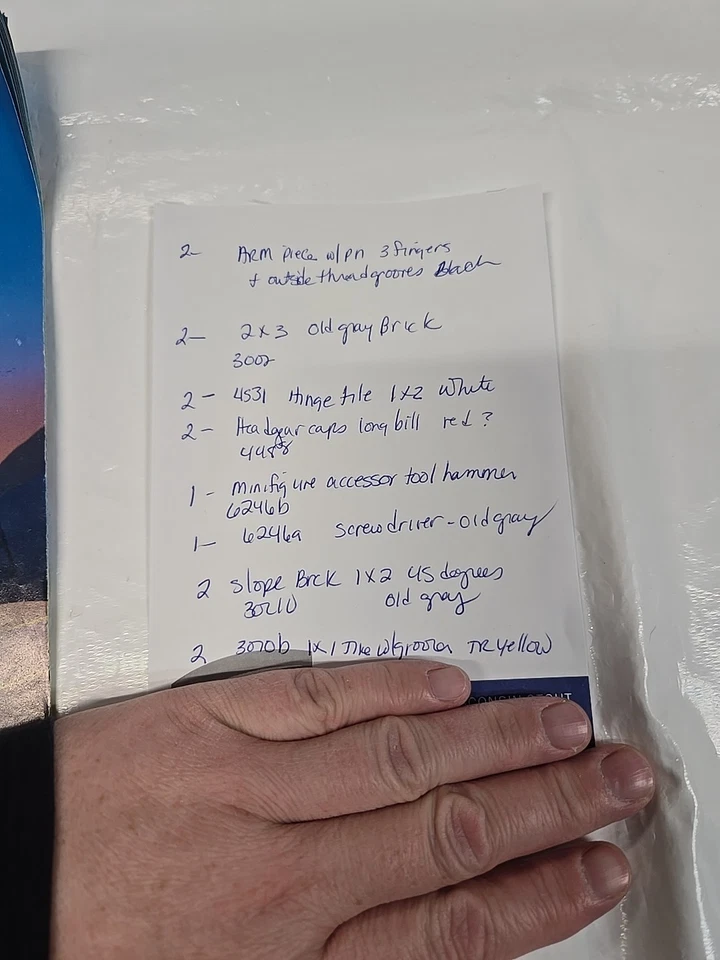 2- ARM piece w/pn 3 fingers
+ outside threadgrooves Black
2- 2x3 old gray Brick
3002
2- 4531 Hinge tile 1x2 White
2- Headgear caps long bill red?
4485
1- minifigure accessor tool hammer
6246b
1- 6246a screwdriver-old gray
2 slope Brck 1x2 45 degrees
old gray
2 3070b 1x1 w/groove TR yellow